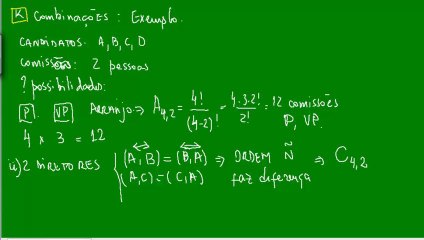 K Combinações: Exemplo.
CANDIDATOS: A, B, C, D
COMISSÕES: 2 pessoas
? possibilidades:
P. VP ARRANJO ⇒ A4,2 = 4!/(4-2)! = 4.3.2!/2! = 12 comissões P, VP.
4 x 3 = 12
ii) 2 DIRETORES { (A, B) = (B, A) ⇒ ORDEM Ñ ⇒ C4,2
(A, C) = (C, A) faz diferença